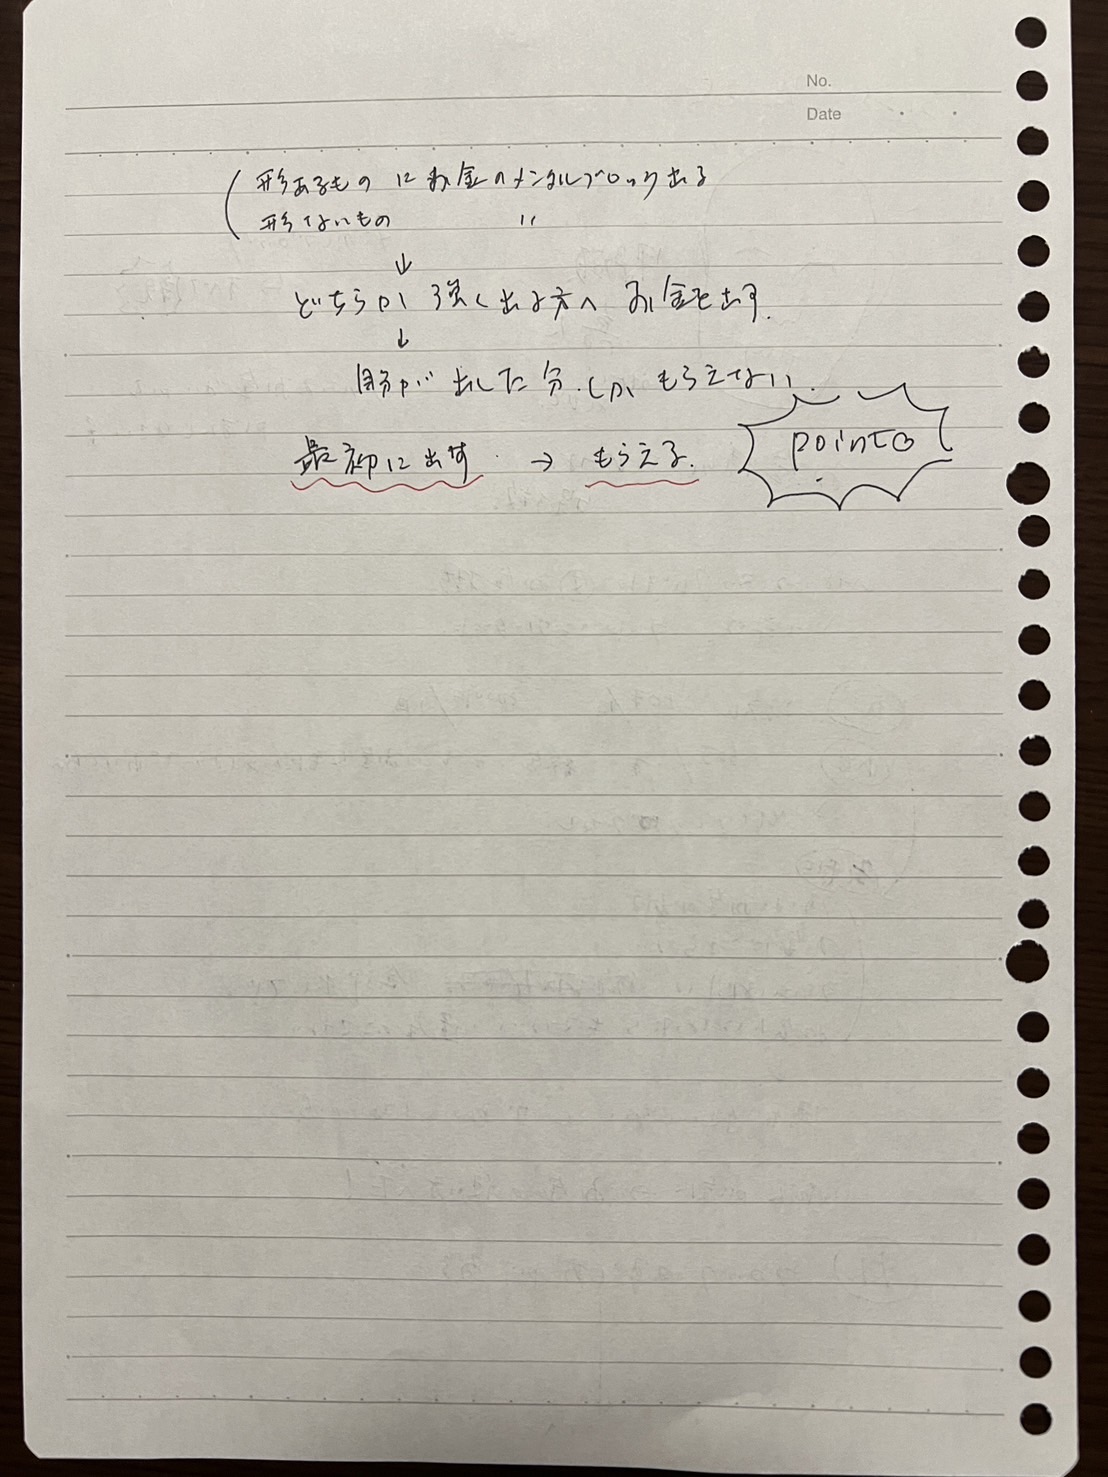 No.
Date
形あるもの にお金のメンタルブロック出る
形ないもの 〃
↓
どちらか 強く出る方へ お金を出す.
↓
自分が 出した分しか もらえない.
最初に出す → もらえる.
point